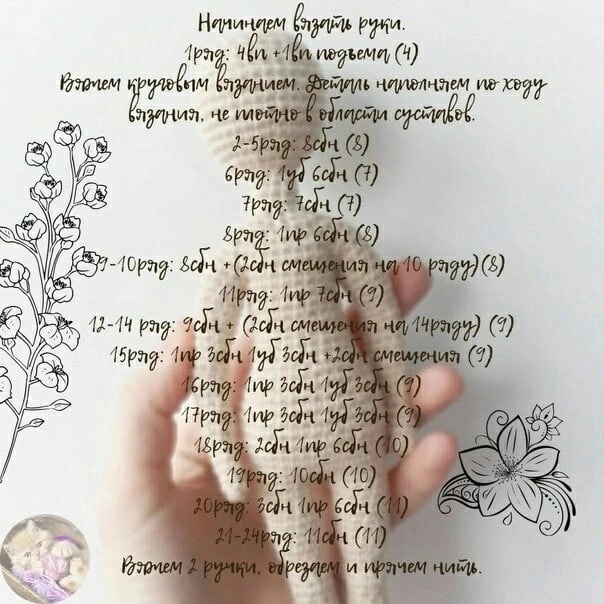 Начинаем вязать руки.
1ряд: 4вп +1вп подъема (4)
Вяжем круговым вязанием. Деталь наполняем по ходу
вязания, не плотно в области суставов.
2-5ряд: 8сбн (8)
6ряд: 1уб 6сбн (7)
7ряд: 7сбн (7)
8ряд: 1пр 6сбн (8)
9-10ряд: 8сбн +(2сбн смещения на 10 ряду)(8)
11ряд: 1пр 7сбн (9)
12-14 ряд: 9сбн + (2сбн смещения на 14ряду) (9)
15ряд: 1пр 3сбн 1уб 3сбн +2сбн смещения (9)
16ряд: 1пр 3сбн 1уб 3сбн (9)
17ряд: 1пр 3сбн 1уб 3сбн (9)
18ряд: 2сбн 1пр 6сбн (10)
19ряд: 10сбн (10)
20ряд: 3сбн 1пр 6сбн (11)
21-24ряд: 11сбн (11)
Вяжем 2 ручки, обрезаем и прячем нить.